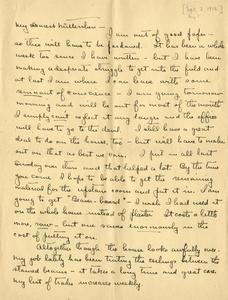 [Sept. 2, 1912]
My dearest
I am out of good paper —
so this will have to be pardoned. It has been a whole
week too since I have written — but I have been
making a desperate struggle to get into the field and
at last I am where I can leave with some
remnant of conscience — I am going tomorrow
morning and will be out for most of the month
I simply must neglect it any longer and the office
will have to go to the devil. I still have a great
deal to do on the house, too — but will have to make
out on that as best we can. I put in all last
Sunday over there and that helped a lot. By the time
you come I hope to be able to get the remaining
material for the upstairs room and put it in. I am
going to get "Beaver board" — I wish I had used it
on the whole house instead of plaster. It costs a little
more, raw — but one saves enormously in the
cost of putting it on.
Altogether though the house looks awfully nice.
My job lately has been tinting the ceilings between the
stained beams — it takes a long time and great care.
My list of trades increases weekly.